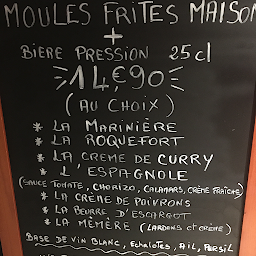 MOULES FRITES MAISON
+
BIERE PRESSION 25 cl
14,€90
(AU CHOIX)
* LA MARINIÈRE
* LA ROQUEFORT
* LA CREME DE CURRY
* L'ESPAGNOLE
(SAUCE TOMATE, CHORIZO, CALAMARS, CRÈME FRAÎCHE)
* LA CRÈME DE POIVRONS
* LA BEURRE D'ESCARGOT
* LA MÉMÈRE (LARDONS et CRÈME)
BASE DE VIN BLANC, ECHALOTES, AIL, PERSIL